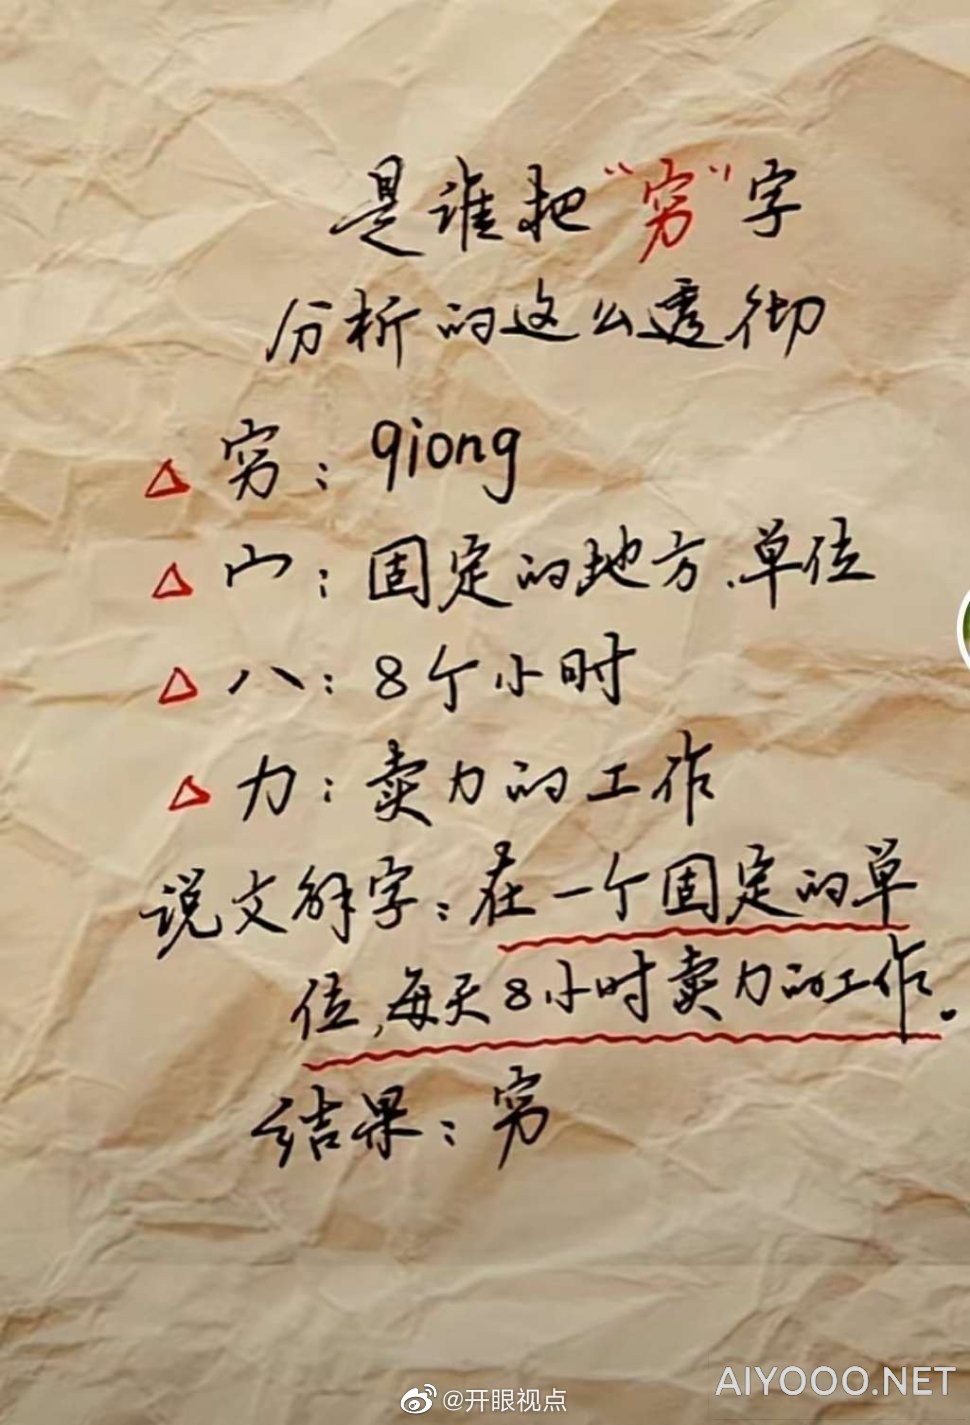 是谁把“穷”字
分析的这么透彻
△ 穷：qiong
△ 宀：固定的地方、单位
△ 八：8个小时
△ 力：卖力的工作
说文解字：在一个固定的单
位，每天8小时卖力的工作。
结果：穷
@开眼视点
AIYOOO.NET